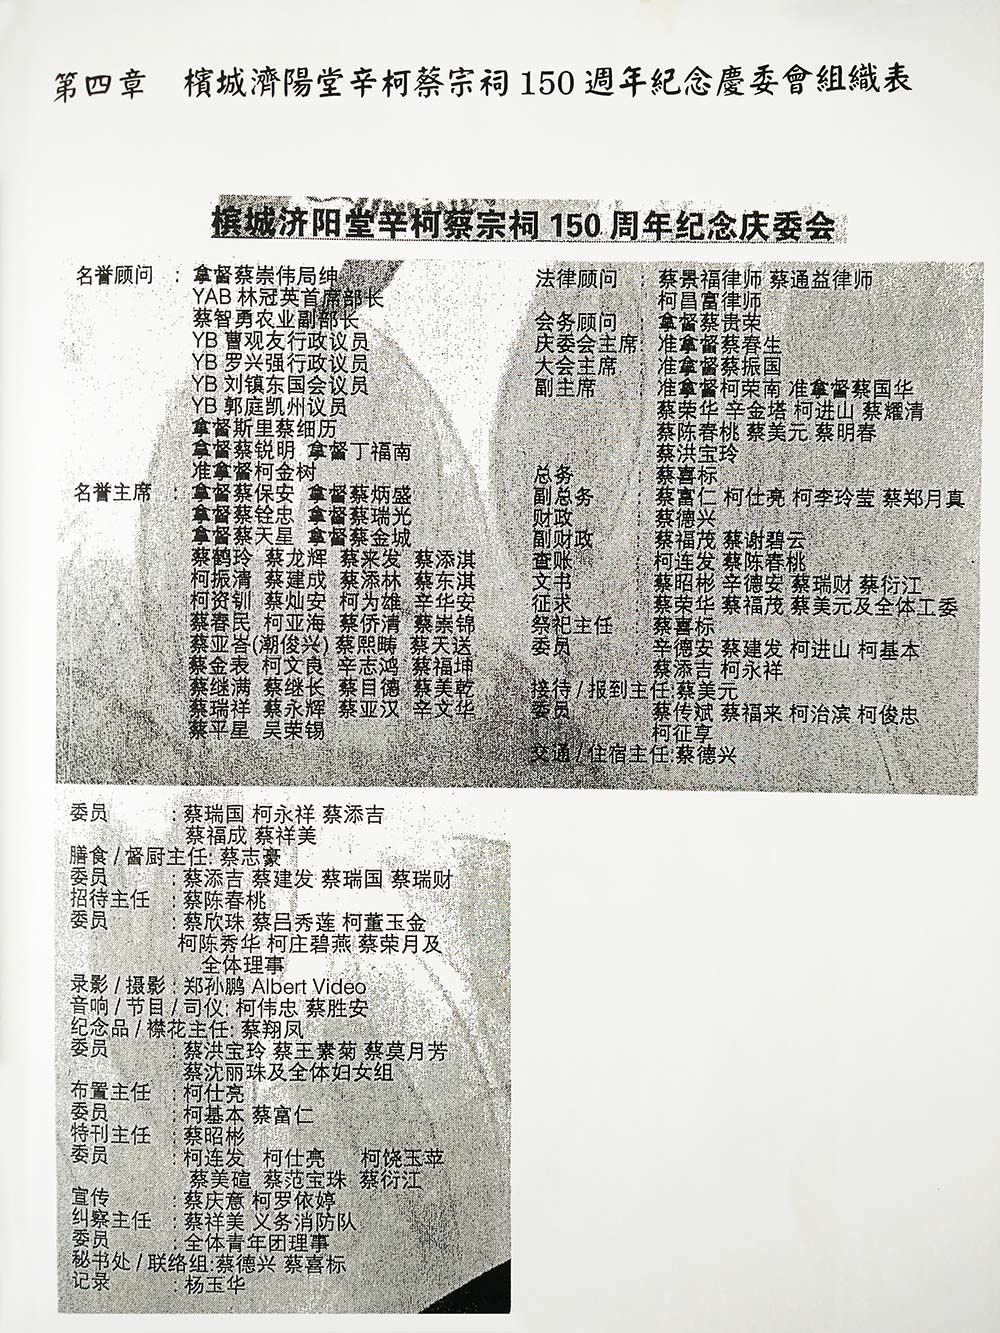 第四章 檳城濟陽堂辛柯蔡宗祠 150 週年紀念慶委會組織表
槟城济阳堂辛柯蔡宗祠 150 周年纪念庆委会
名誉顾问 : 拿督蔡崇伟局绅
YAB 林冠英首席部长
蔡智勇农业副部长
YB 曹观友行政议员
YB 罗兴强行政议员
YB 刘镇东国会议员
YB 郭庭凯州议员
拿督斯里蔡细历
拿督蔡锐明 拿督丁福南
准拿督柯金树
名誉主席 : 拿督蔡保安 拿督蔡炳盛
拿督蔡铨忠 拿督蔡瑞光
拿督蔡天星 拿督蔡金城
蔡鹤玲 蔡龙辉 蔡来发 蔡添淇
柯振清 蔡建成 蔡添林 蔡东淇
柯资钏 蔡灿安 柯为雄 辛华安
蔡春民 柯亚海 蔡侨清 蔡崇锦
蔡亚峇(潮俊兴) 蔡熙畴 蔡天送
蔡金表 柯文良 辛志鸿 蔡福坤
蔡继满 蔡继长 蔡目德 蔡美乾
蔡瑞祥 蔡永辉 蔡亚汉 辛文华
蔡平星 吴荣锡
法律顾问 : 蔡景福律师 蔡通益律师
柯昌富律师
会务顾问 : 拿督蔡贵荣
庆委会主席: 准拿督蔡春生
大会主席 : 准拿督蔡振国
副主席 : 准拿督柯荣南 准拿督蔡国华
蔡荣华 辛金塔 柯进山 蔡耀清
蔡陈春桃 蔡美元 蔡明春
蔡洪宝玲
总务 : 蔡喜标
副总务 : 蔡富仁 柯仕亮 柯李玲莹 蔡郑月真
财政 : 蔡德兴
副财政 : 蔡福茂 蔡谢碧云
查账 : 柯连发 蔡陈春桃
文书 : 蔡昭彬 辛德安 蔡瑞财 蔡衍江
征求 : 蔡荣华 蔡福茂 蔡美元及全体工委
祭祀主任 : 蔡喜标
委员 : 辛德安 蔡建发 柯进山 柯基本
蔡添吉 柯永祥
接待 / 报到主任:蔡美元
委员 : 蔡传斌 蔡福来 柯治滨 柯俊忠
柯征享
交通 / 住宿主任:蔡德兴
委员 : 蔡瑞国 柯永祥 蔡添吉
蔡福成 蔡祥美
膳食 / 督厨主任: 蔡志豪
委员 : 蔡添吉 蔡建发 蔡瑞国 蔡瑞财
招待主任 : 蔡陈春桃
委员 : 蔡欣珠 蔡吕秀莲 柯董玉金
柯陈秀华 柯庄碧燕 蔡荣月及
全体理事
录影 / 摄影 : 郑孙鹏 Albert Video
音响 / 节目 / 司仪: 柯伟忠 蔡胜安
纪念品 / 襟花主任: 蔡翔凤
委员 : 蔡洪宝玲 蔡王素菊 蔡莫月芳
蔡沈丽珠及全体妇女组
布置主任 : 柯仕亮
委员 : 柯基本 蔡富仁
特刊主任 : 蔡昭彬
委员 : 柯连发 柯仕亮 柯饶玉苹
蔡美碹 蔡范宝珠 蔡衍江
宣传 : 蔡庆意 柯罗依婷
纠察主任 : 蔡祥美 义务消防队
委员 : 全体青年团理事
秘书处 / 联络组:蔡德兴 蔡喜标
记录 : 杨玉华